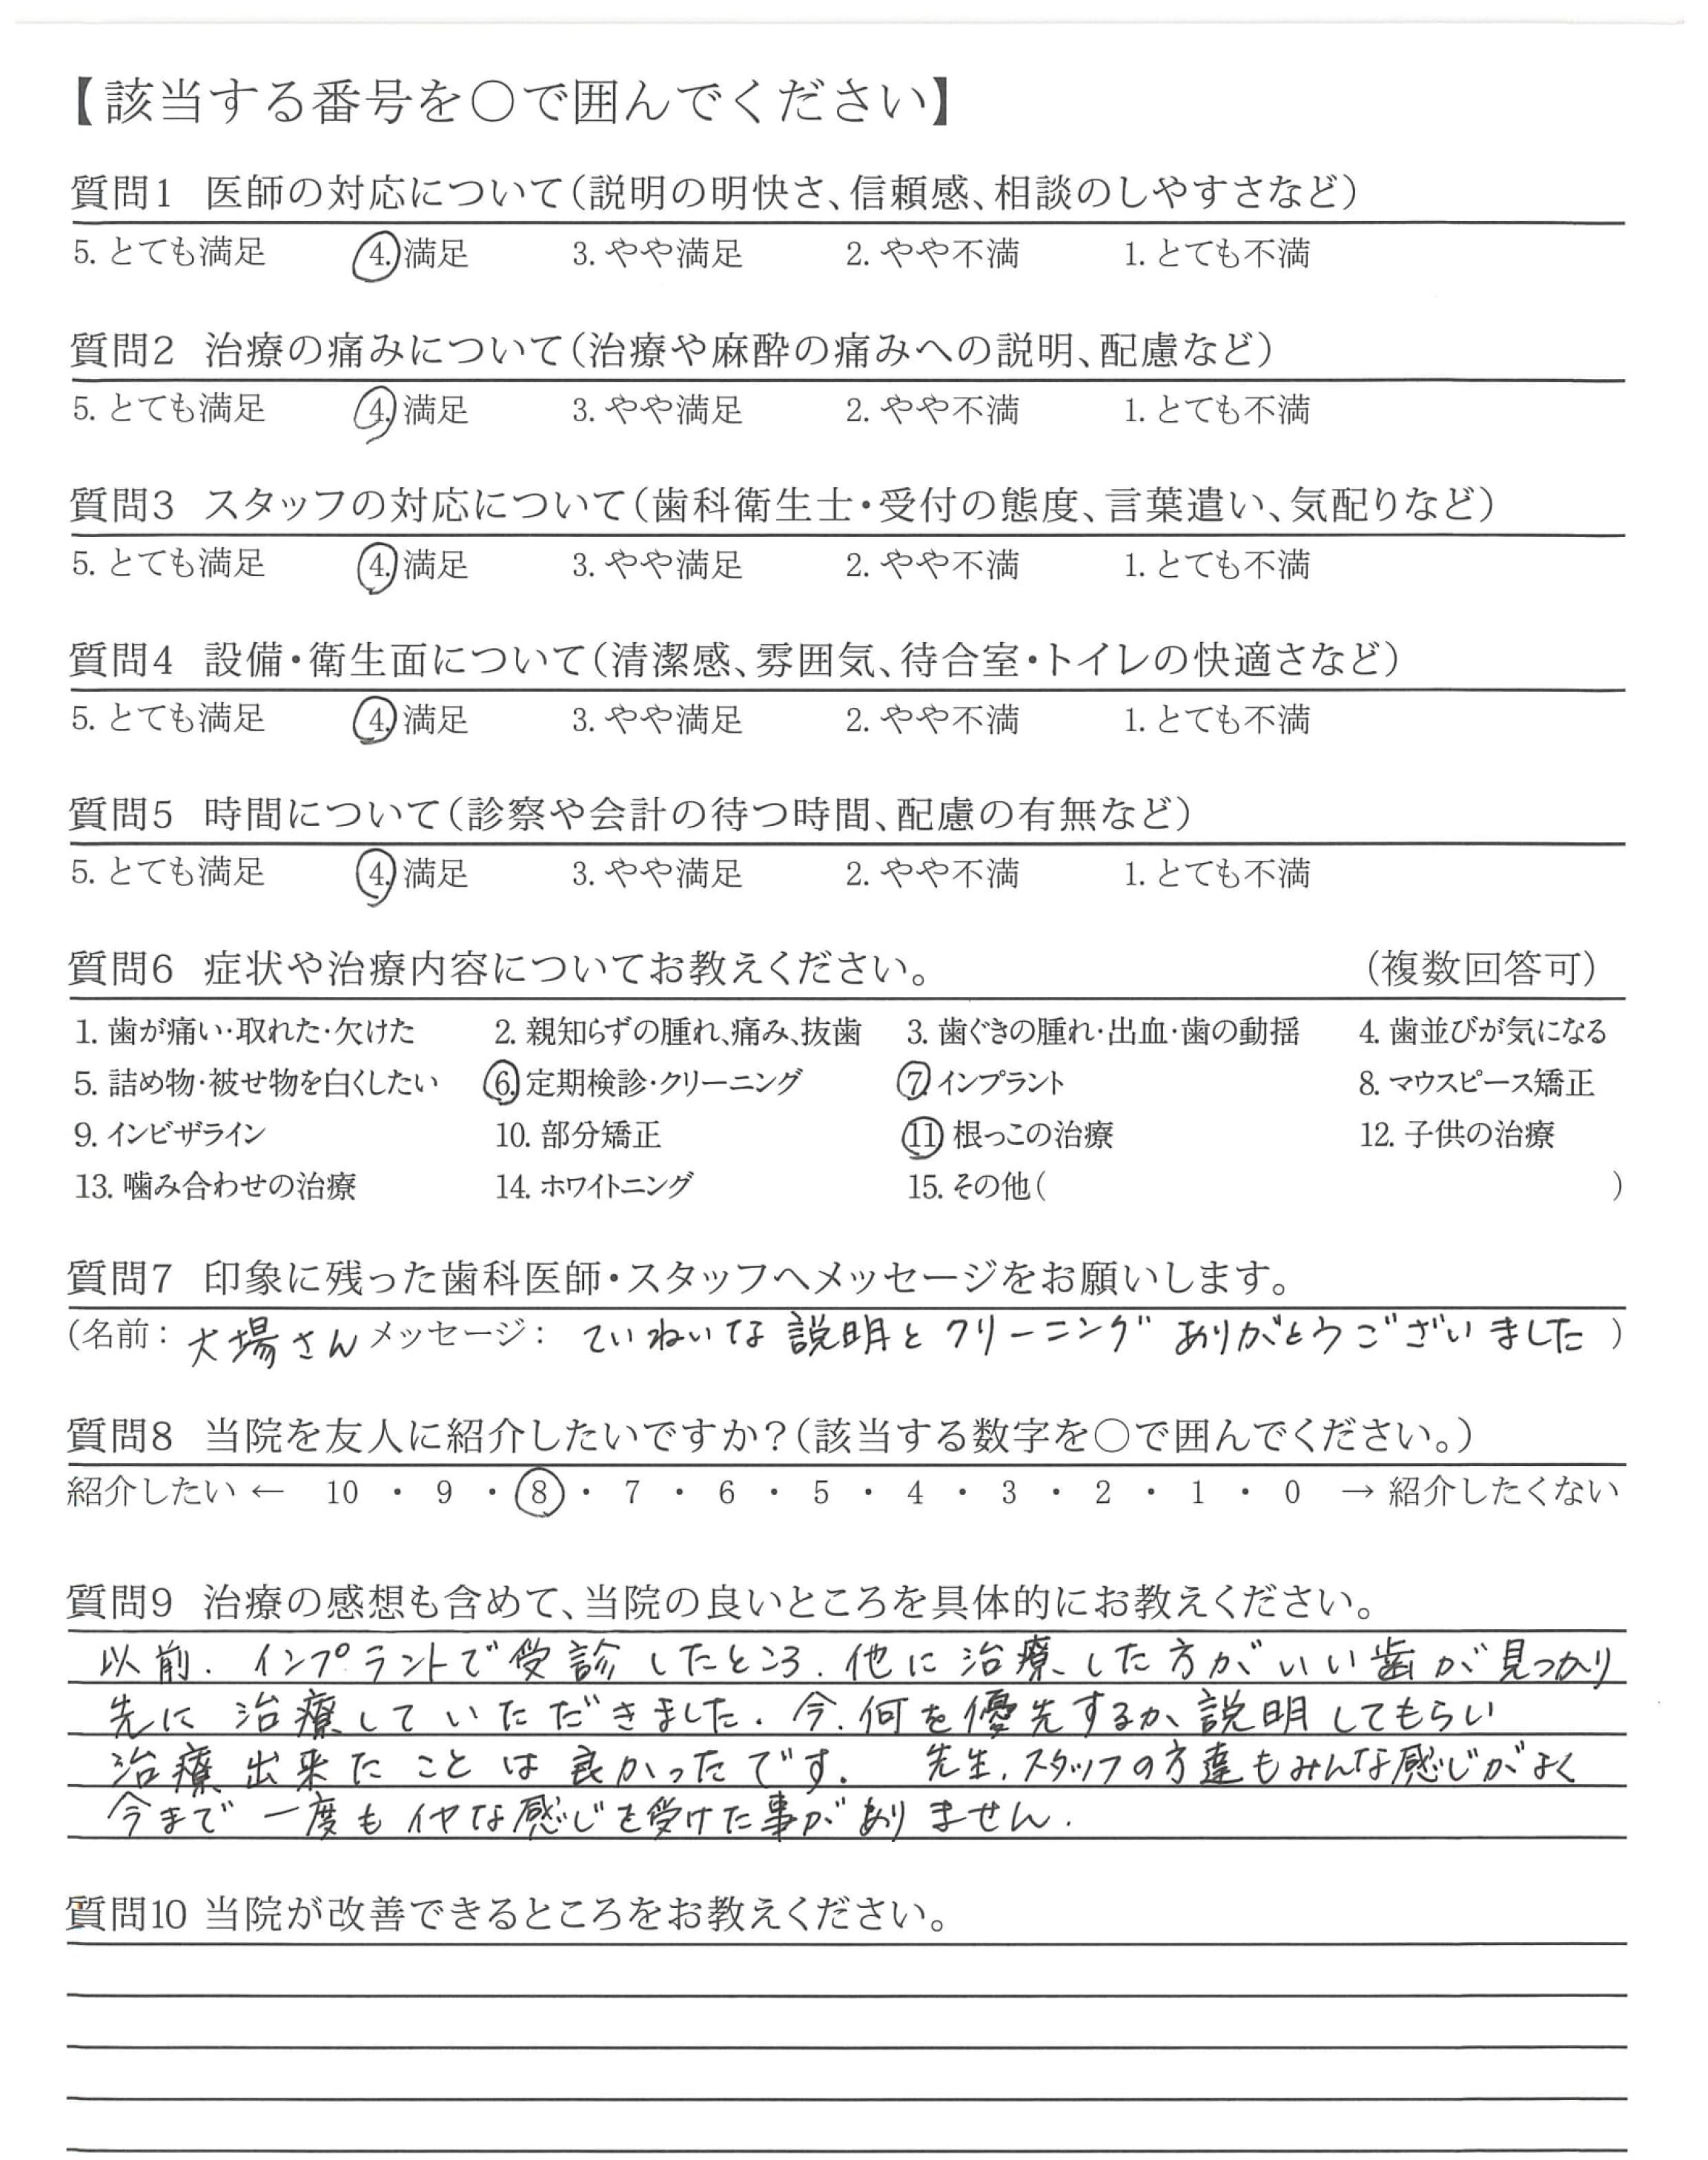 【該当する番号を〇で囲んでください】
質問1 医師の対応について（説明の明快さ、信頼感、相談のしやすさなど）
5. とても満足 4. 満足 3. やや満足 2. やや不満 1. とても不満
質問2 治療の痛みについて（治療や麻酔の痛みへの説明、配慮など）
5. とても満足 4. 満足 3. やや満足 2. やや不満 1. とても不満
質問3 スタッフの対応について（歯科衛生士・受付の態度、言葉遣い、気配りなど）
5. とても満足 4. 満足 3. やや満足 2. やや不満 1. とても不満
質問4 設備・衛生面について（清潔感、雰囲気、待合室・トイレの快適さなど）
5. とても満足 4. 満足 3. やや満足 2. やや不満 1. とても不満
質問5 時間について（診察や会計の待つ時間、配慮の有無など）
5. とても満足 4. 満足 3. やや満足 2. やや不満 1. とても不満
質問6 症状や治療内容についてお教えください。 （複数回答可）
1. 歯が痛い・取れた・欠けた 2. 親知らずの腫れ、痛み、抜歯 3. 歯ぐきの腫れ・出血・歯の動揺 4. 歯並びが気になる
5. 詰め物・被せ物を白くしたい 6. 定期検診・クリーニング 7. インプラント 8. マウスピース矯正
9. インビザライン 10. 部分矯正 11 根っこの治療 12. 子供の治療
13. 噛み合わせの治療 14. ホワイトニング 15. その他（ ）
質問7 印象に残った歯科医師・スタッフへメッセージをお願いします。
（名前： 大場さん メッセージ： ていねいな説明とクリーニングありがとうございました ）
質問8 当院を友人に紹介したいですか？（該当する数字を〇で囲んでください。）
紹介したい ← 10 ・ 9 ・ 8 ・ 7 ・ 6 ・ 5 ・ 4 ・ 3 ・ 2 ・ 1 ・ 0 → 紹介したくない
質問9 治療の感想も含めて、当院の良いところを具体的にお教えください。
以前、インプラントで受診したところ、他に治療した方がいい歯が見つかり
先に治療していただきました。今、何を優先するか、説明してもらい
治療出来たことは良かったです。 先生、スタッフの方達もみんな感じがよく
今まで一度もイヤな感じを受けた事がありません。
質問10 当院が改善できるところをお教えください。